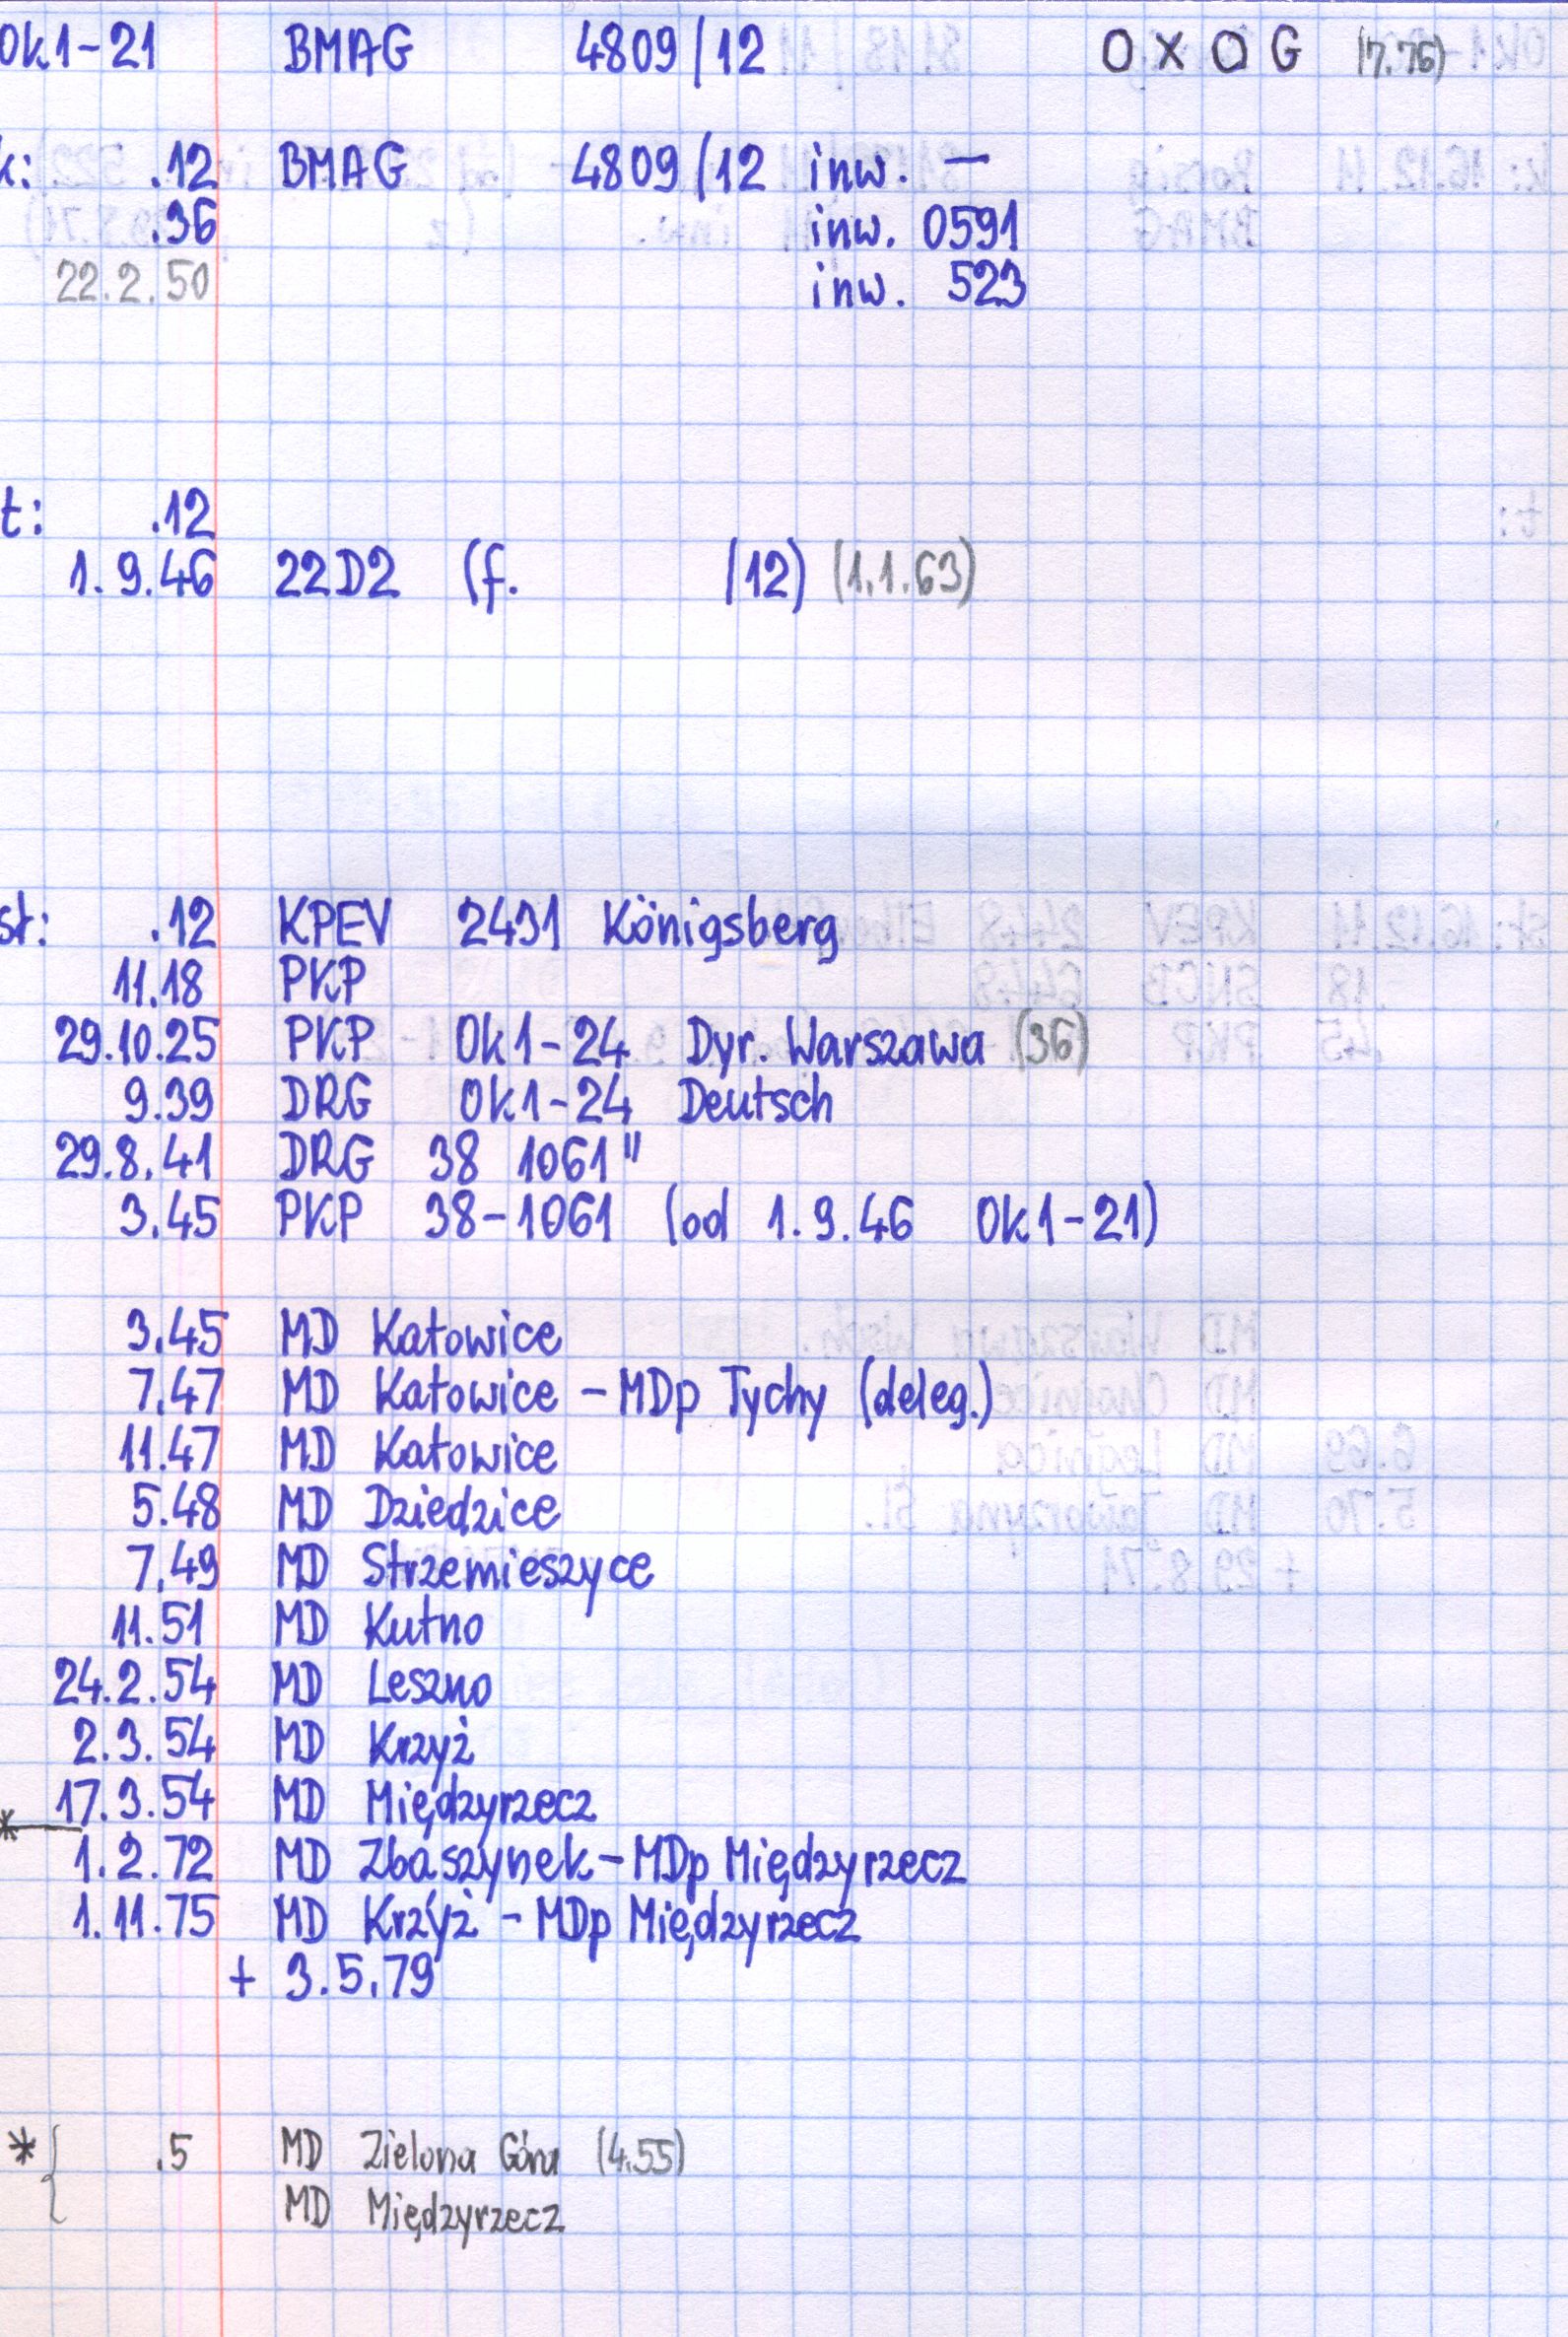 Ok1-21 BMAG 4809/12 O X O G (7.76)
k: .12 BMAG 4809/12 inw. —
.36 inw. 0591
22.2.50 inw. 523
t: .12
1.9.46 22D2 (f. /12) (1.1.63)
st: .12 KPEV 2431 Königsberg
11.18 PKP
29.10.25 PKP Ok1-24 Dyr. Warszawa (36)
9.39 DRG Ok1-24 Deutsch
29.8.41 DRG 38 1061"
3.45 PKP 38-1061 (od 1.9.46 Ok1-21)
3.45 MD Katowice
7.47 MD Katowice - MDp Tychy (deleg.)
11.47 MD Katowice
5.48 MD Dziedzice
7.49 MD Strzemieszyce
11.51 MD Kutno
24.2.54 MD Leszno
2.3.54 MD Krzyż
17.3.54 MD Międzyrzecz
*
1.2.72 MD Zbąszynek - MDp Międzyrzecz
1.11.75 MD Krzyż - MDp Międzyrzecz
+ 3.5.79
* { .5 MD Zielona Góra (4.55)
MD Międzyrzecz